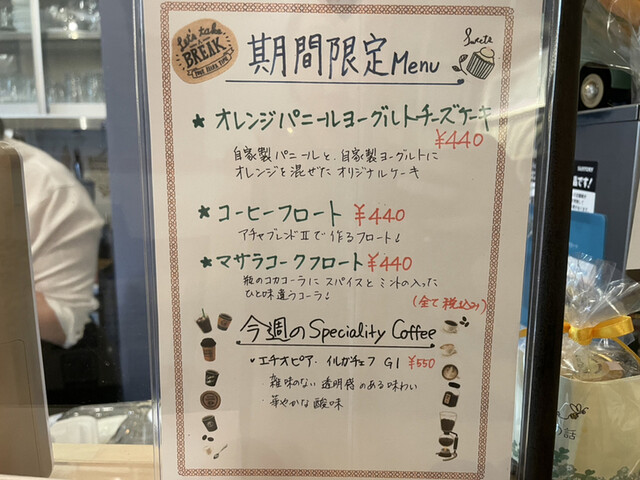 Let's take
A
BREAK
期間限定Menu
Sweets
★ オレンジパニールヨーグルトチーズケーキ
¥440
自家製パニールと、自家製ヨーグルトに
オレンジを混ぜたオリジナルケーキ
★ コーヒーフロート ¥440
アチャブレンドⅡで作るフロート♪
★ マサラコークフロート ¥440
瓶のコカコーラにスパイスとミントの入った
ひと味違うコーラ♪
(全て税込み)
今週のSpeciality Coffee
・エチオピア・イルガチェフ G1 ¥550
・雑味のない透明感のある味わい
・華やかな酸味
です!
の話